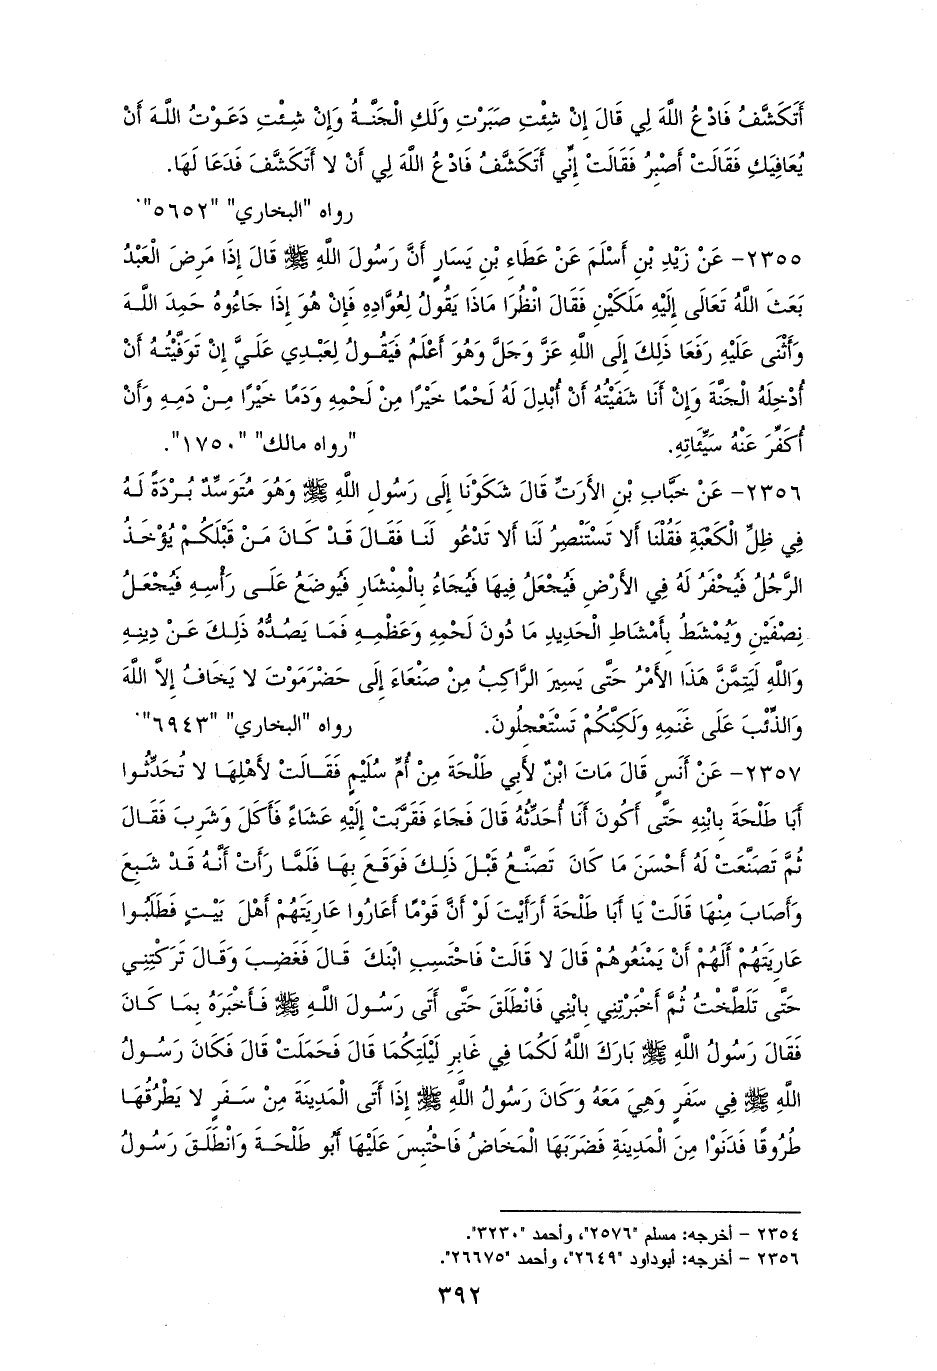 أَتَكَشَّفُ فَادْعُ اللَّهَ لِي قَالَ إِنْ شِئْتِ صَبَرْتِ وَلَكِ الْجَنَّةُ وَإِنْ شِئْتِ دَعَوْتُ اللَّهَ أَنْ
يُعَافِيَكِ فَقَالَتْ أَصْبِرُ فَقَالَتْ إِنِّي أَتَكَشَّفُ فَادْعُ اللَّهَ لِي أَنْ لا أَتَكَشَّفَ فَدَعَا لَهَا.
رواه "البخاري" "٥٦٥٢".
٢٣٥٥- عَنْ زَيْدِ بْنِ أَسْلَمَ عَنْ عَطَاءِ بْنِ يَسَارٍ أَنَّ رَسُولَ اللَّهِ ﷺ قَالَ إِذَا مَرِضَ الْعَبْدُ
بَعَثَ اللَّهُ تَعَالَى إِلَيْهِ مَلَكَيْنِ فَقَالَ انْظُرَا مَاذَا يَقُولُ لِعُوَّادِهِ فَإِنْ هُوَ إِذَا جَاءُوهُ حَمِدَ اللَّهَ
وَأَثْنَى عَلَيْهِ رَفَعَا ذَلِكَ إِلَى اللَّهِ عَزَّ وَجَلَّ وَهُوَ أَعْلَمُ فَيَقُولُ لِعَبْدِي عَلَيَّ إِنْ تَوَفَّيْتُهُ أَنْ
أُدْخِلَهُ الْجَنَّةَ وَإِنْ أَنَا شَفَيْتُهُ أَنْ أُبْدِلَ لَهُ لَحْمًا خَيْرًا مِنْ لَحْمِهِ وَدَمًا خَيْرًا مِنْ دَمِهِ وَأَنْ
أُكَفِّرَ عَنْهُ سَيِّئَاتِهِ. "رواه مالك" "١٧٥٠".
٢٣٥٦- عَنْ خَبَّابِ بْنِ الأَرَتِّ قَالَ شَكَوْنَا إِلَى رَسُولِ اللَّهِ ﷺ وَهُوَ مُتَوَسِّدٌ بُرْدَةً لَهُ
فِي ظِلِّ الْكَعْبَةِ فَقُلْنَا أَلا تَسْتَنْصِرُ لَنَا أَلا تَدْعُو لَنَا فَقَالَ قَدْ كَانَ مَنْ قَبْلَكُمْ يُؤْخَذُ
الرَّجُلُ فَيُحْفَرُ لَهُ فِي الأَرْضِ فَيُجْعَلُ فِيهَا فَيُجَاءُ بِالْمِنْشَارِ فَيُوضَعُ عَلَى رَأْسِهِ فَيُجْعَلُ
نِصْفَيْنِ وَيُمْشَطُ بِأَمْشَاطِ الْحَدِيدِ مَا دُونَ لَحْمِهِ وَعَظْمِهِ فَمَا يَصُدُّهُ ذَلِكَ عَنْ دِينِهِ
وَاللَّهِ لَيَتِمَّنَّ هَذَا الأَمْرُ حَتَّى يَسِيرَ الرَّاكِبُ مِنْ صَنْعَاءَ إِلَى حَضْرَمَوْتَ لا يَخَافُ إِلاَّ اللَّهَ
وَالذِّئْبَ عَلَى غَنَمِهِ وَلَكِنَّكُمْ تَسْتَعْجِلُونَ. رواه "البخاري" "٦٩٤٣".
٢٣٥٧- عَنْ أَنَسٍ قَالَ مَاتَ ابْنٌ لأَبِي طَلْحَةَ مِنْ أُمِّ سُلَيْمٍ فَقَالَتْ لأَهْلِهَا لا تُحَدِّثُوا
أَبَا طَلْحَةَ بِابْنِهِ حَتَّى أَكُونَ أَنَا أُحَدِّثُهُ قَالَ فَجَاءَ فَقَرَّبَتْ إِلَيْهِ عَشَاءً فَأَكَلَ وَشَرِبَ فَقَالَ
ثُمَّ تَصَنَّعَتْ لَهُ أَحْسَنَ مَا كَانَ تَصَنَّعُ قَبْلَ ذَلِكَ فَوَقَعَ بِهَا فَلَمَّا رَأَتْ أَنَّهُ قَدْ شَبِعَ
وَأَصَابَ مِنْهَا قَالَتْ يَا أَبَا طَلْحَةَ أَرَأَيْتَ لَوْ أَنَّ قَوْمًا أَعَارُوا عَارِيَتَهُمْ أَهْلَ بَيْتٍ فَطَلَبُوا
عَارِيَتَهُمْ أَلَهُمْ أَنْ يَمْنَعُوهُمْ قَالَ لا قَالَتْ فَاحْتَسِبِ ابْنَكَ قَالَ فَغَضِبَ وَقَالَ تَرَكْتِنِي
حَتَّى تَلَطَّخْتُ ثُمَّ أَخْبَرْتِنِي بِابْنِي فَانْطَلَقَ حَتَّى أَتَى رَسُولَ اللَّهِ ﷺ فَأَخْبَرَهُ بِمَا كَانَ
فَقَالَ رَسُولُ اللَّهِ ﷺ بَارَكَ اللَّهُ لَكُمَا فِي غَابِرِ لَيْلَتِكُمَا قَالَ فَحَمَلَتْ قَالَ فَكَانَ رَسُولُ
اللَّهِ ﷺ فِي سَفَرٍ وَهِيَ مَعَهُ وَكَانَ رَسُولُ اللَّهِ ﷺ إِذَا أَتَى الْمَدِينَةَ مِنْ سَفَرٍ لا يَطْرُقُهَا
طُرُوقًا فَدَنَوْا مِنَ الْمَدِينَةِ فَضَرَبَهَا الْمَخَاضُ فَاحْتُبِسَ عَلَيْهَا أَبُو طَلْحَةَ وَانْطَلَقَ رَسُولُ
٢٣٥٤ - أخرجه: مسلم "٢٥٧٦"، وأحمد "٣٢٣٠".
٢٣٥٦ - أخرجه: أبوداود "٢٦٤٩"، وأحمد "٢٦٦٧٥".
٣٩٢